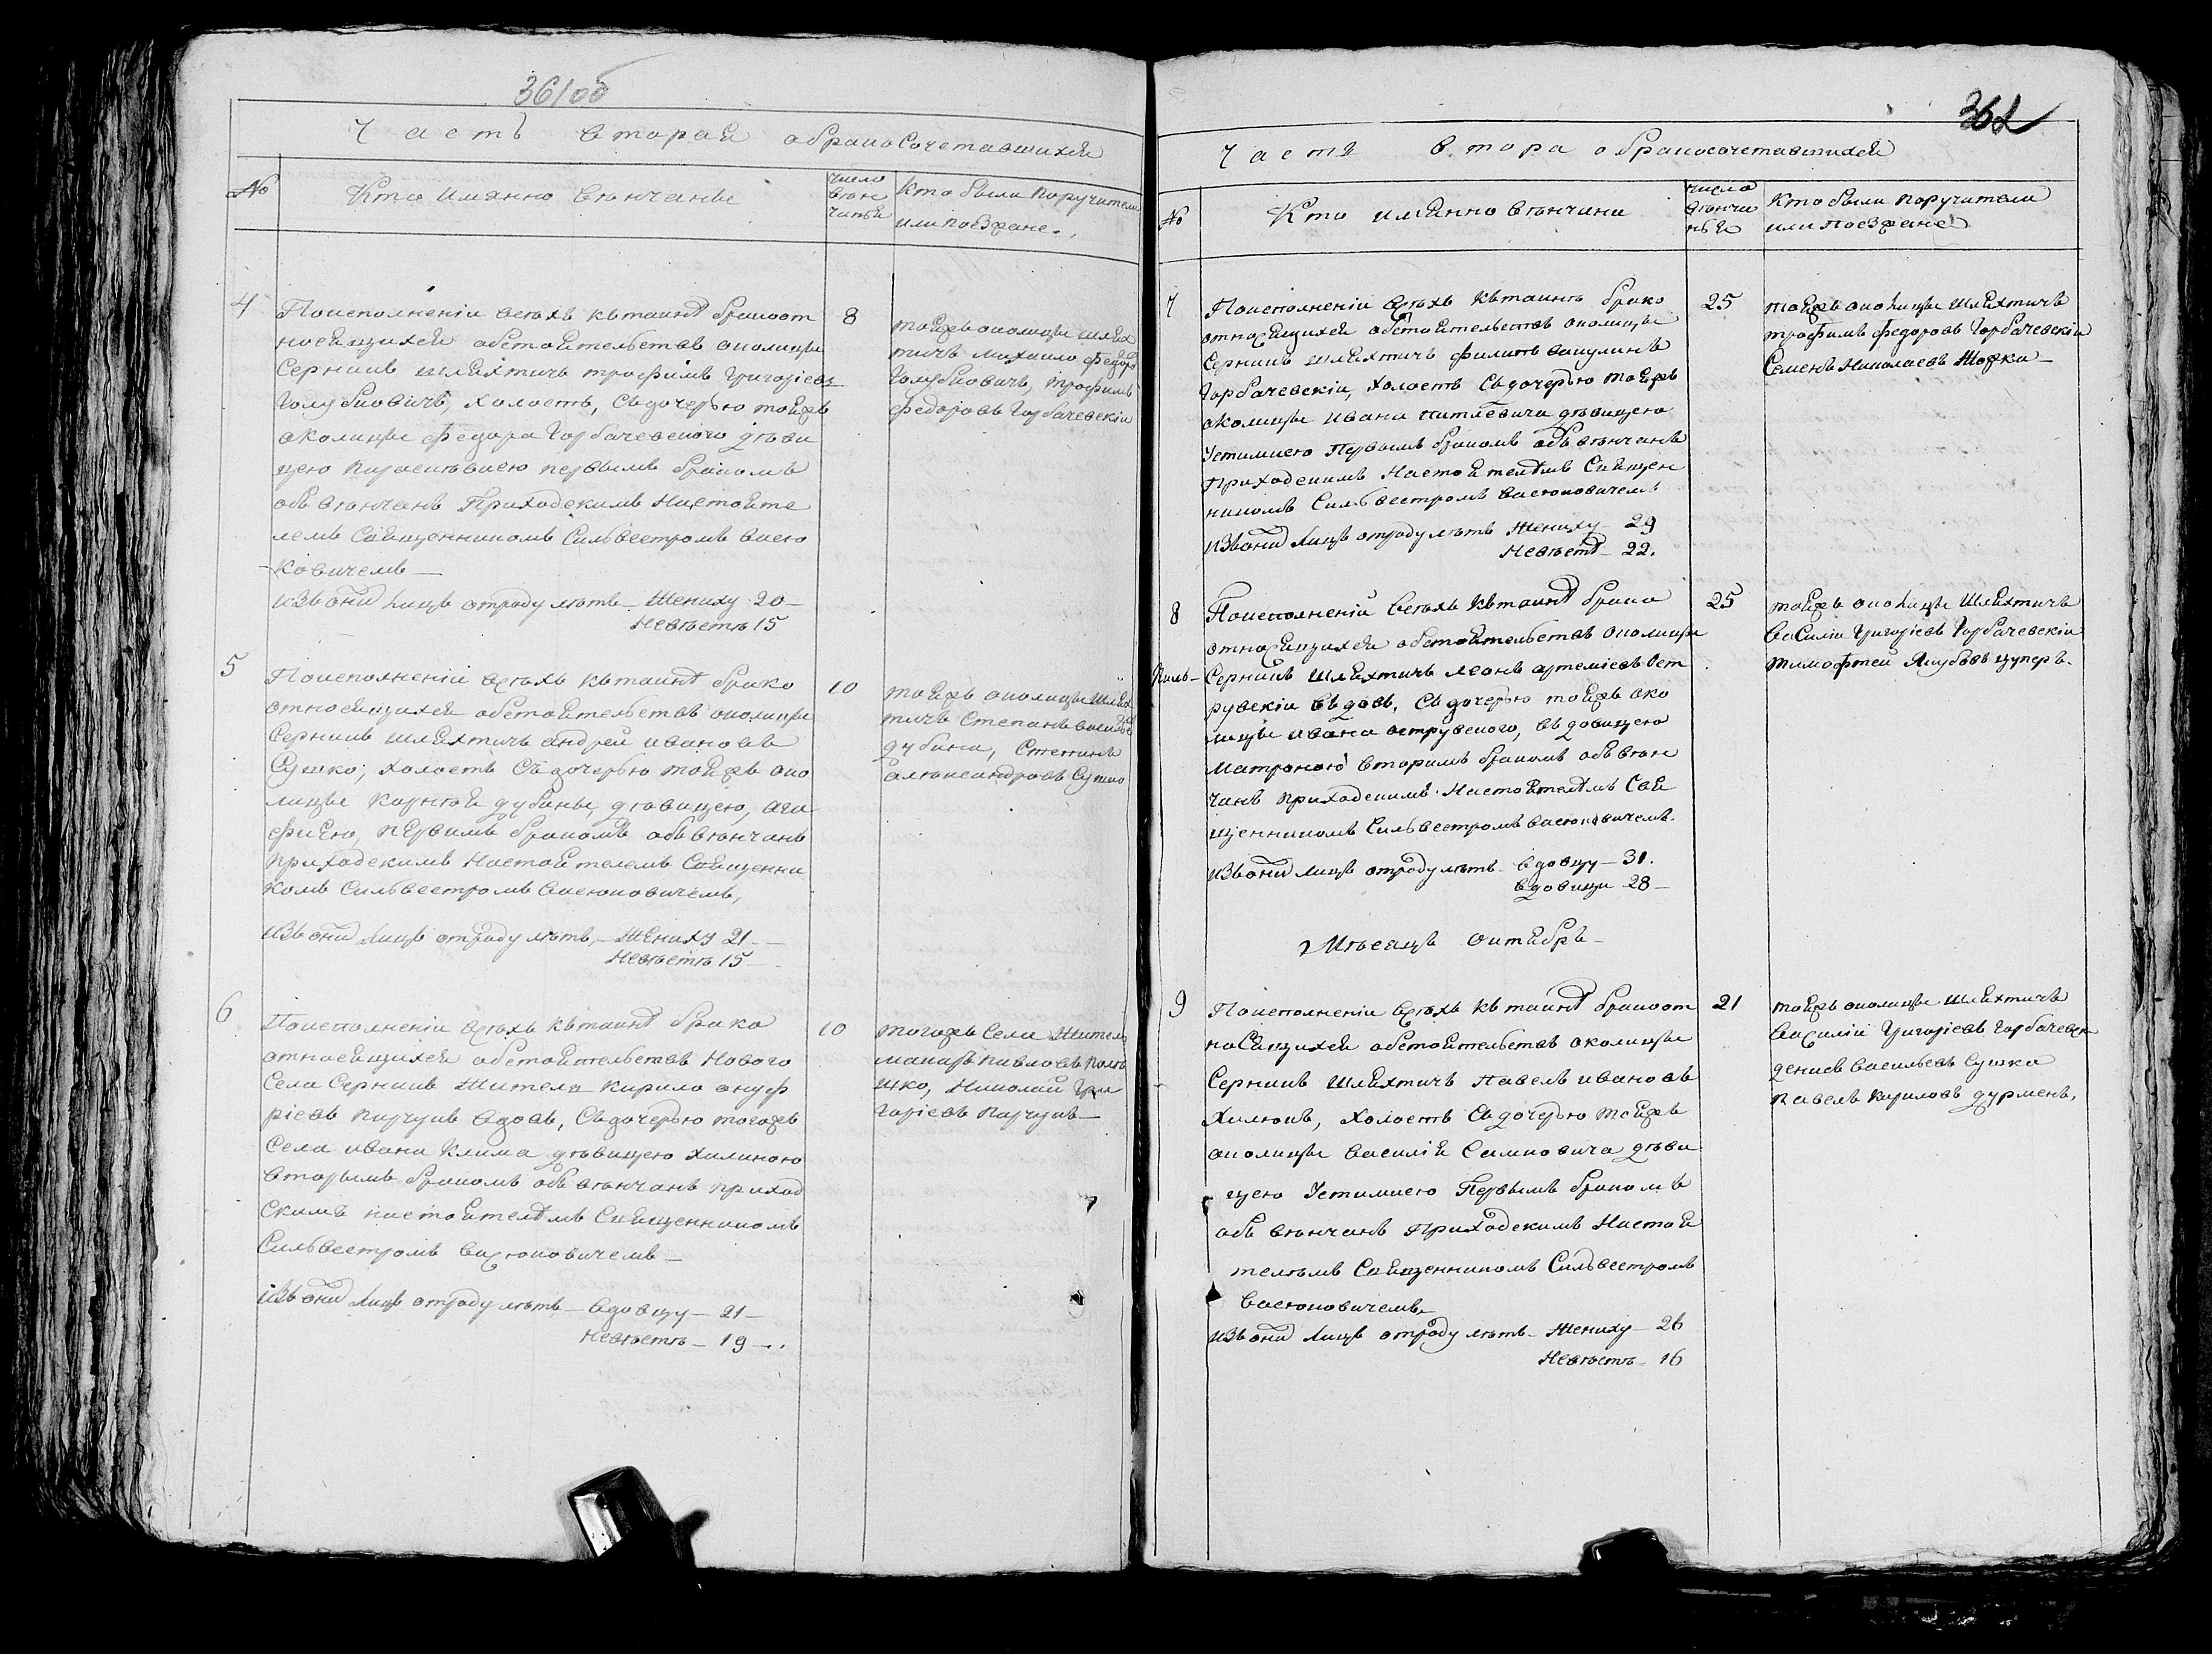 361об
Часть вторая обракосочетавшихся
№ Кто имянно Венчанье
число
венчанья
Кто были поручители
или поезжане.
4
Поисполненіи всехъ къ таинѣ бракоот
носящихся обстоятельствъ околицы
Серникъ шляхтичь трофимъ Григоріевъ
Голубовичъ, холостъ, съ дочерью тойжъ
околицы Федора Горбачевского деви
цею Парасковіею первымъ бракомъ
обвѣнчанъ Приходскимъ Настояте
лемъ Священникомъ Сильвестромъ Васю
ковичемъ —
изъ оных лицъ отроду лѣтъ — Жениху 20 —
Невѣстѣ 15
8
тойжъ околицы шлях
тичь Михайло Федоров
Голубовичъ, трофимъ
Федоровъ Горбачевскій
5
Поисполненіи всѣхъ къ таинѣ брако
относящихся обстоятельствъ околицы
Серникъ шляхтичь андрей ивановъ
Сушко, холостъ съ дочерью тойжъ око
лицы Корнѣя дубины, дѣвицею, ага
фіею, первымъ бракомъ обвѣнчанъ
приходскимъ Настоятелемъ Священни
комъ Сильвестромъ Васюковичемъ,
изъ оных лицъ отроду лѣтъ, — Жениху 21 —
Невѣстѣ 15 —
10
тойжъ околицы шлях
тичь Степанъ Васильев
дубина, Степанъ
александровъ Сушко
6
Поисполненіи всѣхъ къ таинѣ брака
относящихся обстоятельствъ Нового
Села Серникъ Житель Кирило ануф
ріевъ Парчукъ вдовъ, съ дочерью тогожъ
Села ивана Клима дѣвицею Халимою
вторымъ бракомъ обвѣнчанъ приход
скимъ настоятелемъ Священникомъ
Сильвестромъ Васюковичемъ —
изъ оных лицъ отроду лѣтъ — вдовцу — 21 —
Невѣстѣ — 19 —.
10
тогожъ Села Житель
макаръ Павловъ Поле
шко, Николай Гри
горіевъ Парчукъ —
362
Часть втора обракосочетавшихся
№ Кто имянно вѣнчани
число
вѣнчанья
Кто были поручители
или поезжане
7
Поисполненіи всѣхъ къ таинѣ брако
относящихся обстоятельствъ околицы
Серникъ шляхтичь филипъ
Горбачевскій, холостъ съ дочерью тойжъ
околицы ивана дѣвицею
Устимією Первымъ бракомъ обвѣнчанъ
Приходскимъ Настоятелемъ Священ
никомъ Сильвестромъ Васюковичемъ
изъ оных лицъ отроду лѣтъ Жениху — 29
Невѣстѣ — 22.
25
тойжъ околицы шляхтичь
трофимъ Федоровъ Горбачевскій
Семенъ Николаевъ
8
Поисполненіи всѣхъ къ таинѣ брака
относящихся обстоятельствъ околицы
Серникъ шляхтичь леонъ артеміевъ Ост
рускій вдовъ, съ дочерью тойжъ око
лицы ивана острусского, вдовицею
Матроною вторимъ бракомъ обвѣн
чанъ приходскимъ Настоятелемъ Свя
щенникомъ Сильвестромъ Васюковичемъ.
изъ оных лицъ отроду лѣтъ — вдовцу — 31.
вдовици — 28 —
25
тойжъ околицы шляхтичь
Василій Григоріевъ Горбачевскій
тимофтей Якубовъ цуперъ.
Мѣсяцъ октябрь —
9
Поисполненіи всѣхъ къ таинѣ бракоот
носящихся обстоятельствъ околицы
Серникъ шляхтичь Павелъ ивановъ
Хилюкъ, холостъ съ дочерью тойжъ
околицы Василія дѣви
цею Устимією Первымъ бракомъ
обвѣнчанъ Приходскимъ Настоя
телемъ Священникомъ Сильвестромъ
Васюковичемъ
изъ оных лицъ отроду лѣтъ — Жениху — 26
Невѣстѣ — 16
21
тойжъ околицы шляхтичь
Василій Григоріевъ Горбачевск
денисъ Васильевъ Сушка
Павелъ Кириловъ дурменъ,